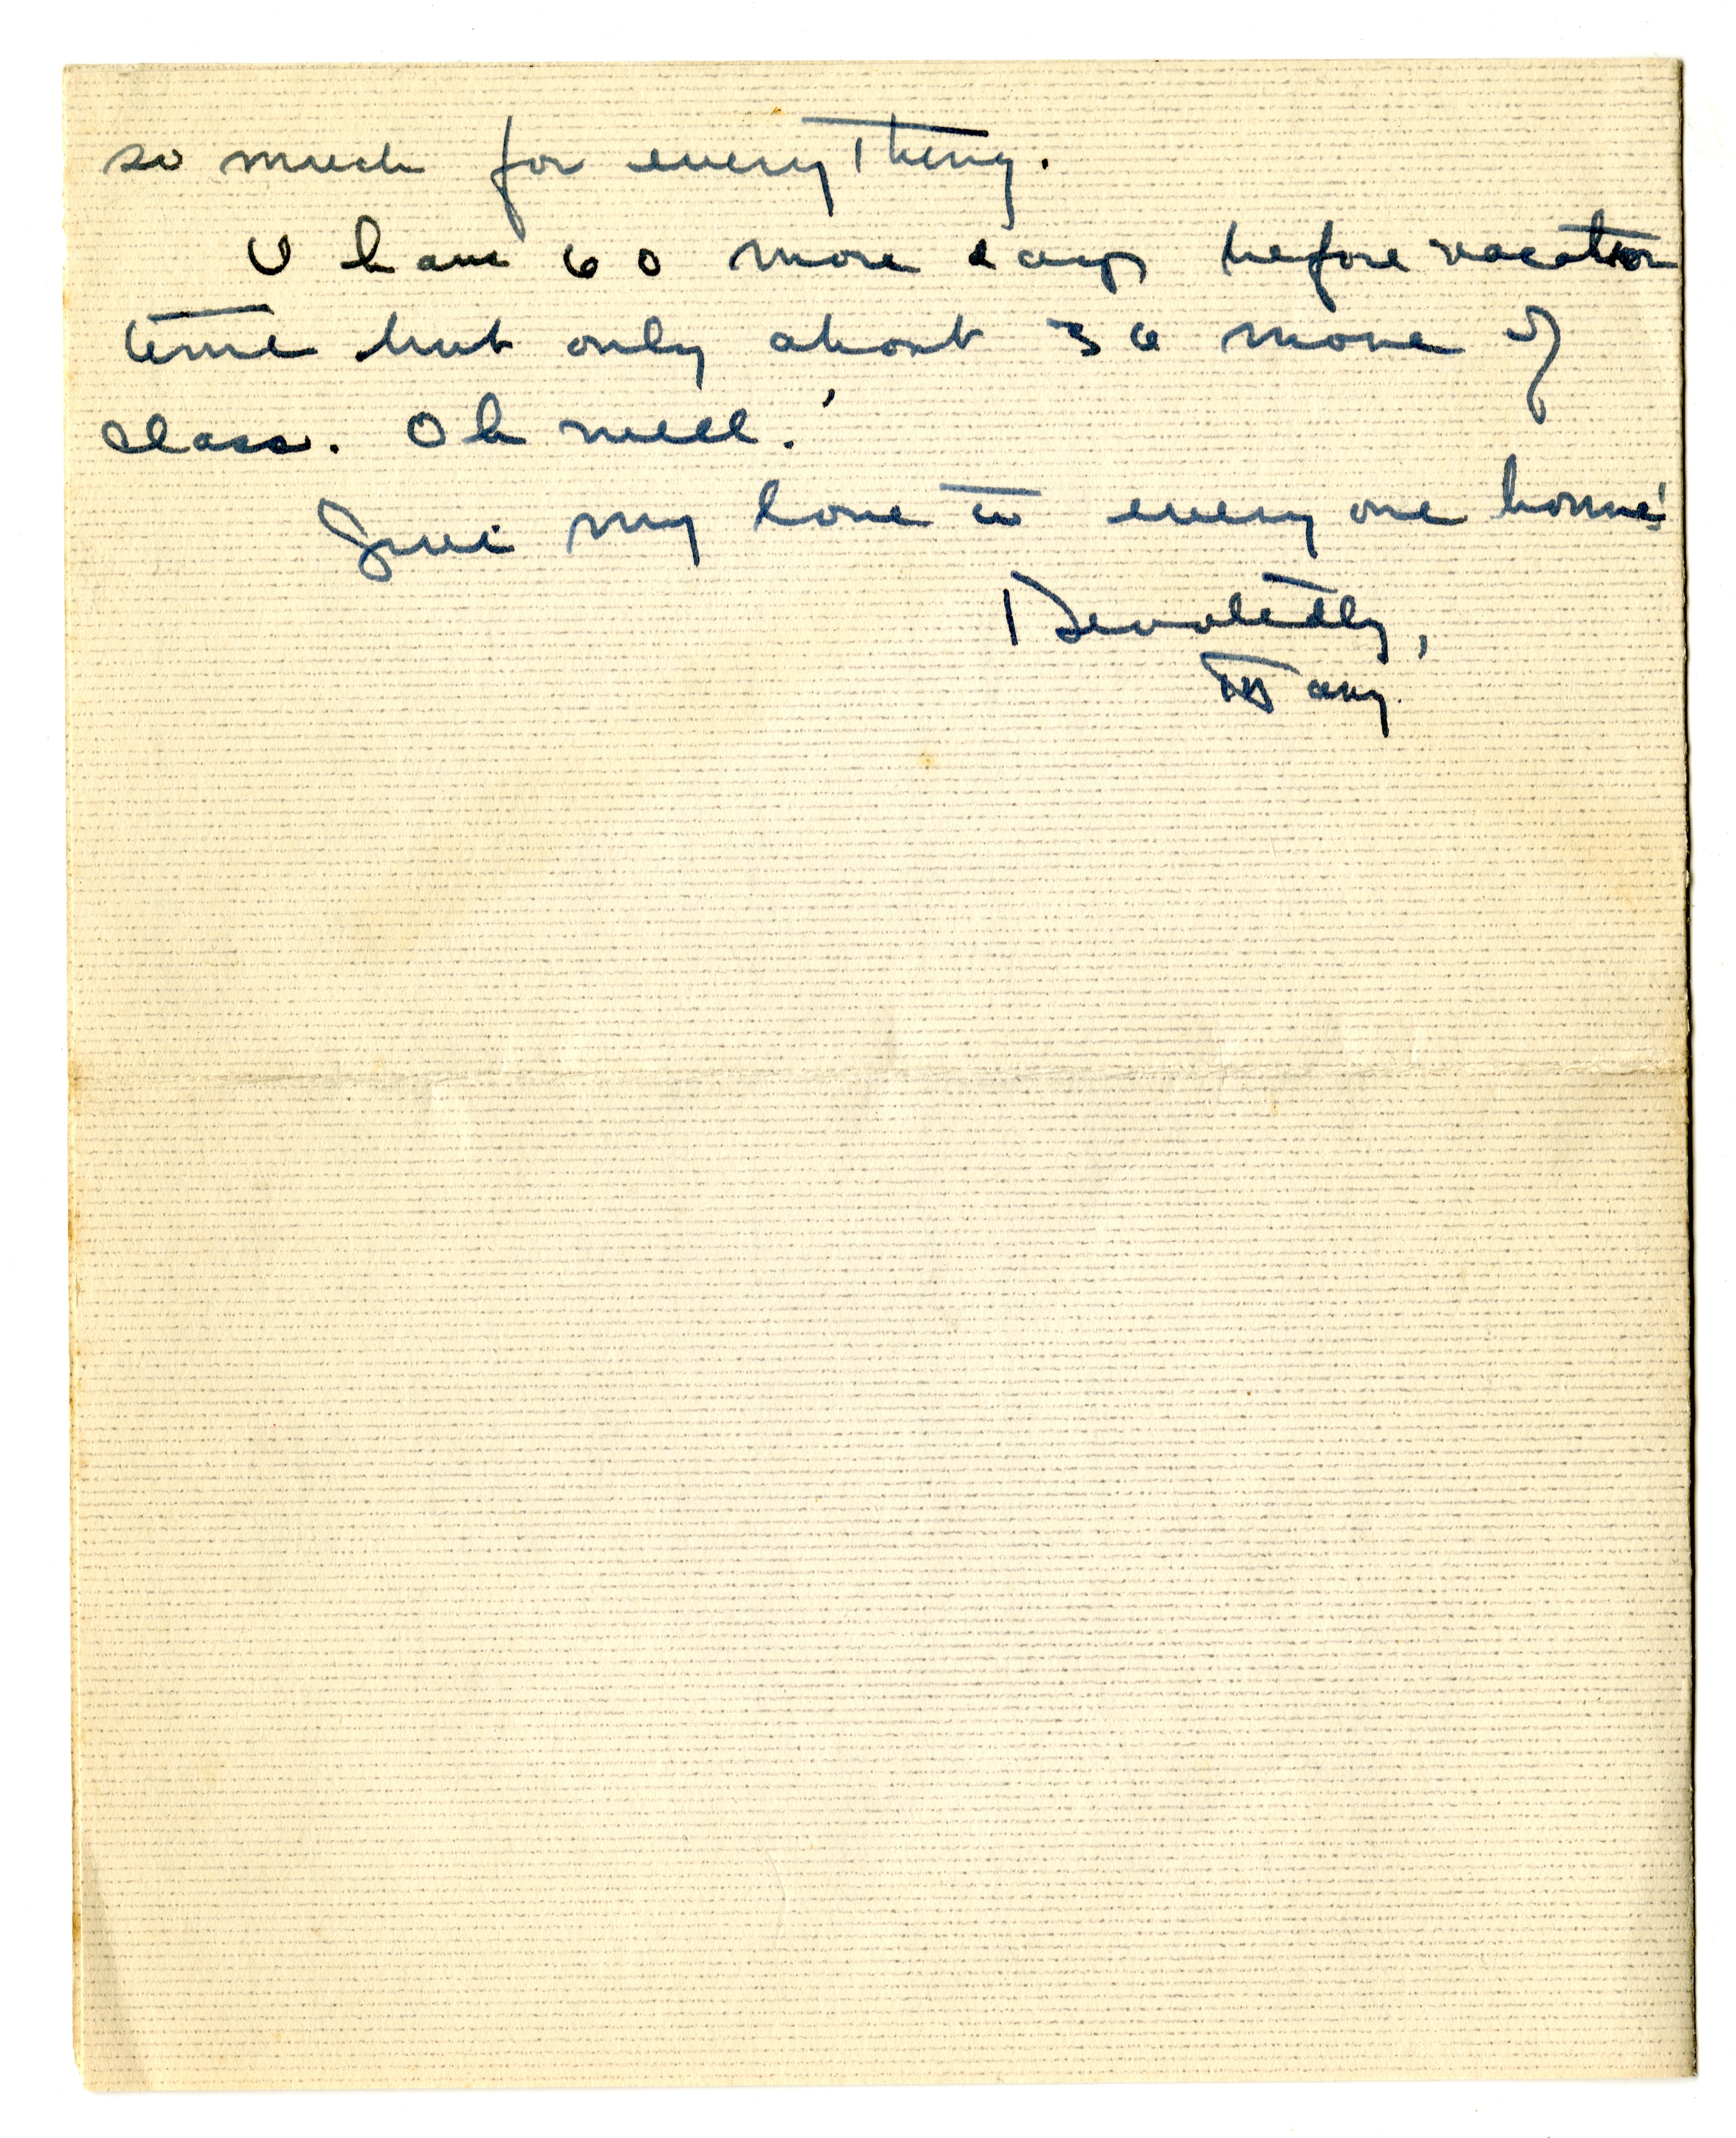 so much for everything.
I have 60 more days before vacation
time but only about 36 more of
class. Oh well!
Give my love to every one home!
Devotedly,
Mary